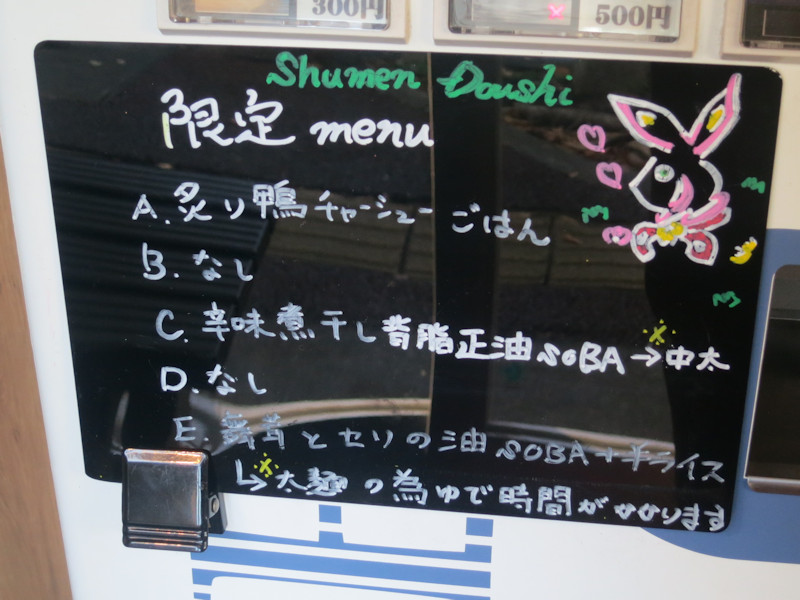 300円
500円
Shumen Doushi
限定 menu
A. 炙り鴨チャーシューごはん
B. なし
C. 辛味煮干し背脂正油SOBA→中太
D. なし
E. とセリの油SOBA+半ライス
↳太麺の為ゆで時間がかかります